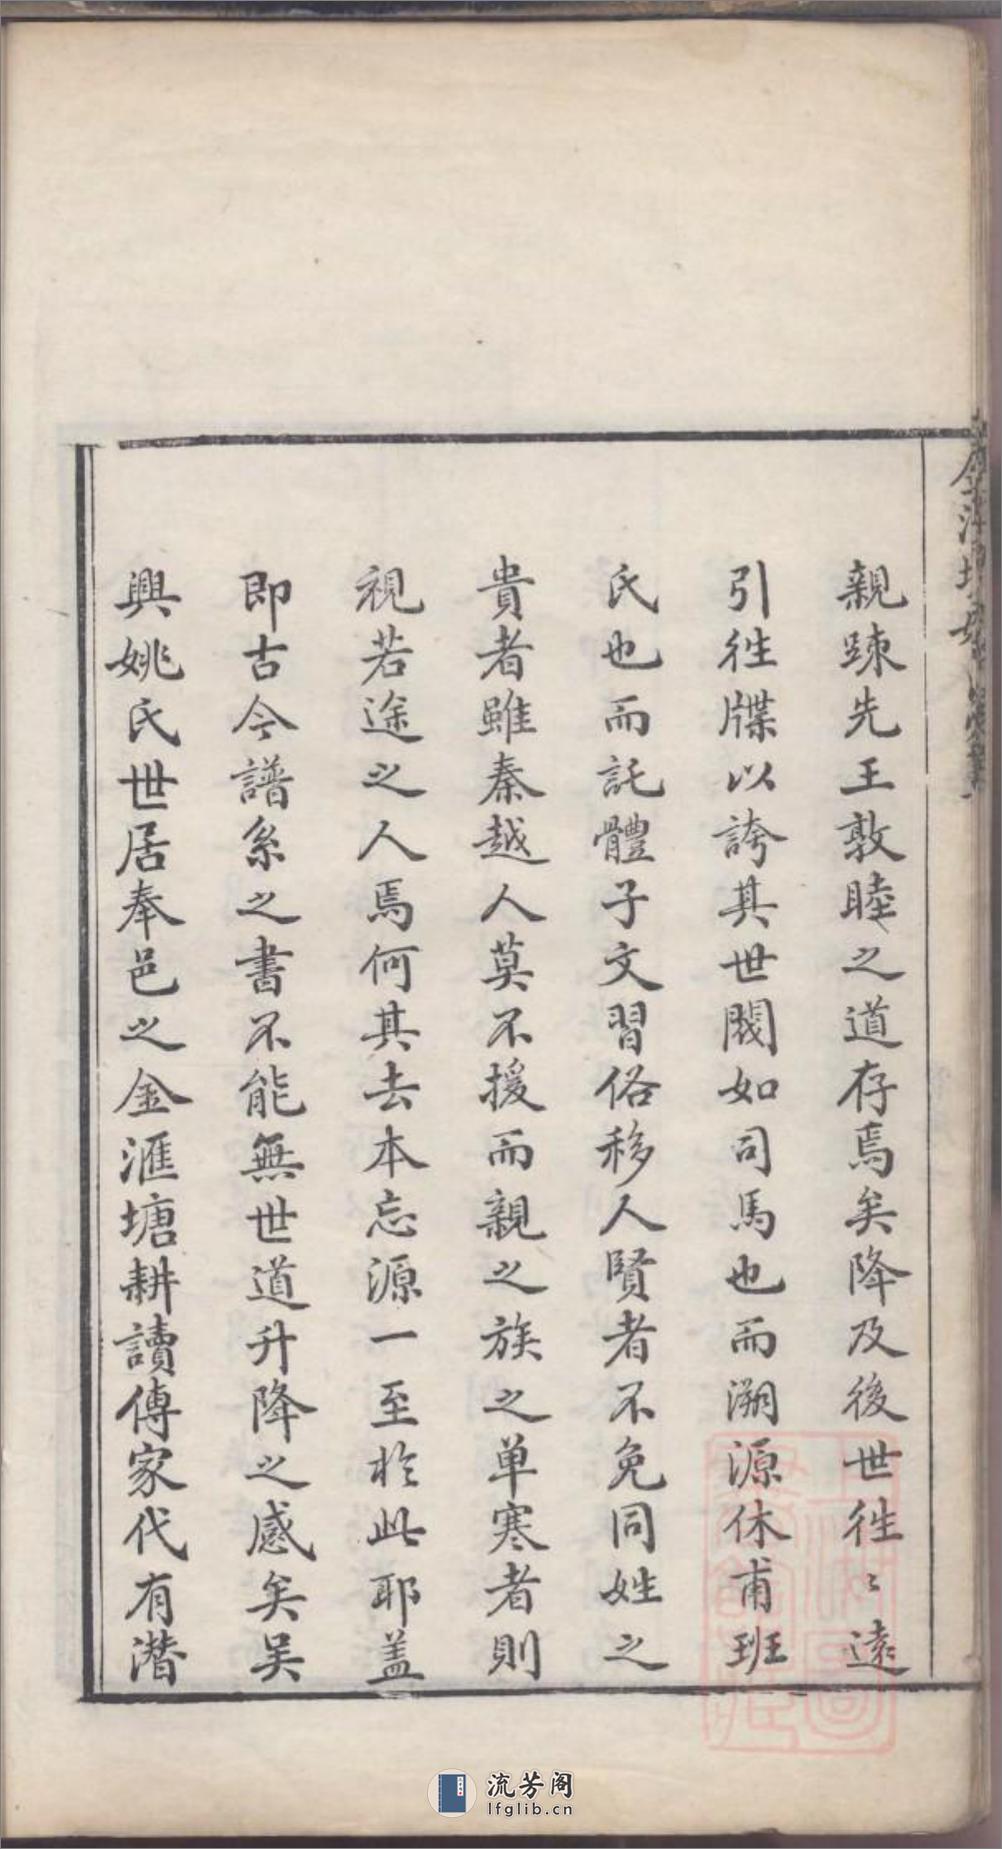 親踈先王敦睦之道存焉矣降及後世徃〻遠
引徃牒以誇其世閥如司馬也而溯源休甫班
氏也而託體子文習俗移人賢者不免同姓之
貴者雖秦越人莫不援而親之族之单寒者則
視若途之人焉何其去本忘源一至於此耶盖
即古今譜系之書不能無世道升降之感矣吴
興姚氏世居奉邑之金滙塘耕讀傳家代有潛
流芳阁
lfglib.cn